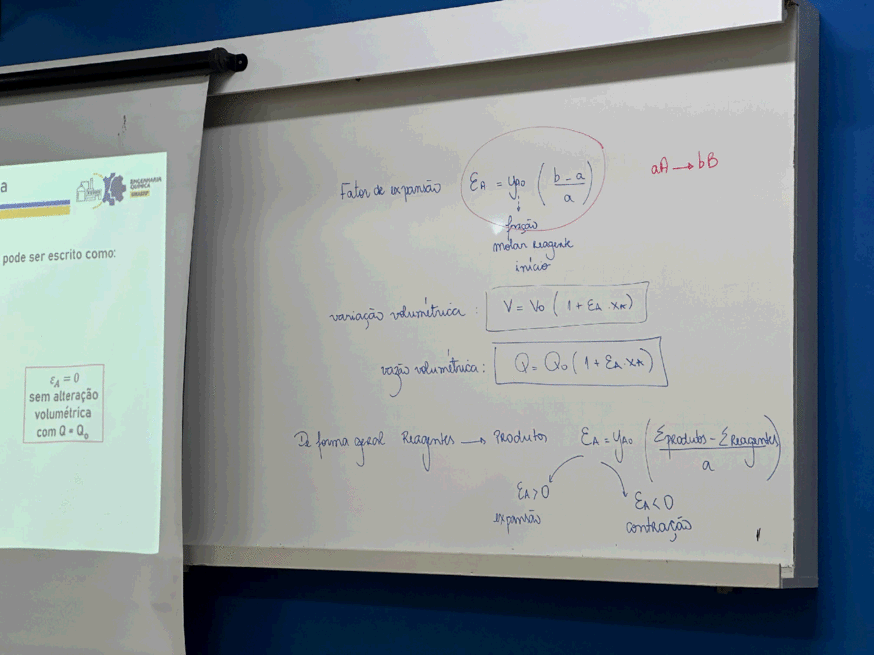 a
ENGENHARIA
QUÍMICA
pode ser escrito como:
ε_A = 0
sem alteração
volumétrica
com Q = Q₀
Fator de expansão ε_A = y_A0 ( (b - a) / a ) aA → bB
fração
molar reagente
início
variação volumétrica : V = V₀ ( 1 + ε_A . x_A )
vazão volumétrica : Q = Q₀ ( 1 + ε_A . x_A )
De forma geral Reagentes → Produtos ε_A = y_A0 ( (Σprodutos - Σreagentes) / a )
ε_A > 0 ε_A < 0
expansão contração